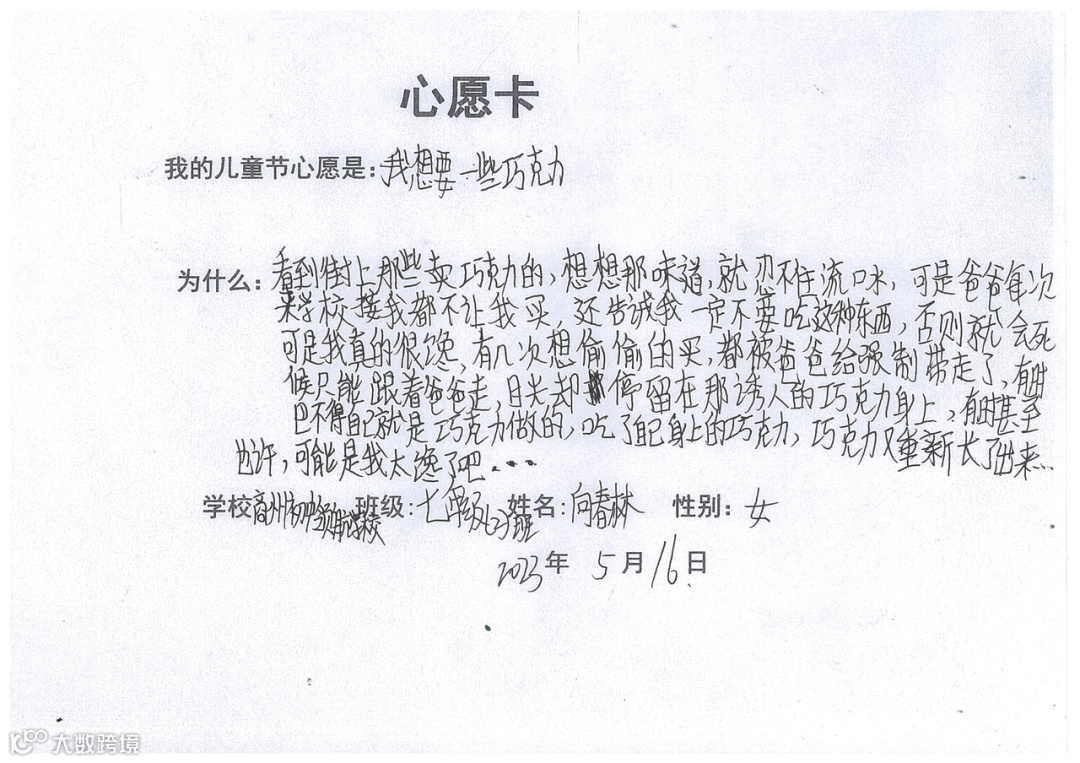 心愿卡
我的儿童节心愿是:我想要一些巧克力
为什么:看到街上那些卖巧克力的,想想那味道,就忍不住流口水,可是爸爸每次
来学校接我都不让我买,还告诫我一定不要吃这种东西,否则就会死
可是我真的很馋,有几次想偷偷的买,都被爸爸给强制带走了、有时
候只能跟着爸爸走,目光却停留在那诱人的巧克力身上,有时甚至
巴不得自己就是巧克力做的,吃了自己身上的巧克力,巧克力又重新长了出来…
也许,可能是我太馋了吧…
学校 商州初 学校 班级:七年级(2)班 姓名:向春林 性别:女
2023年 5月16日
大数跨境